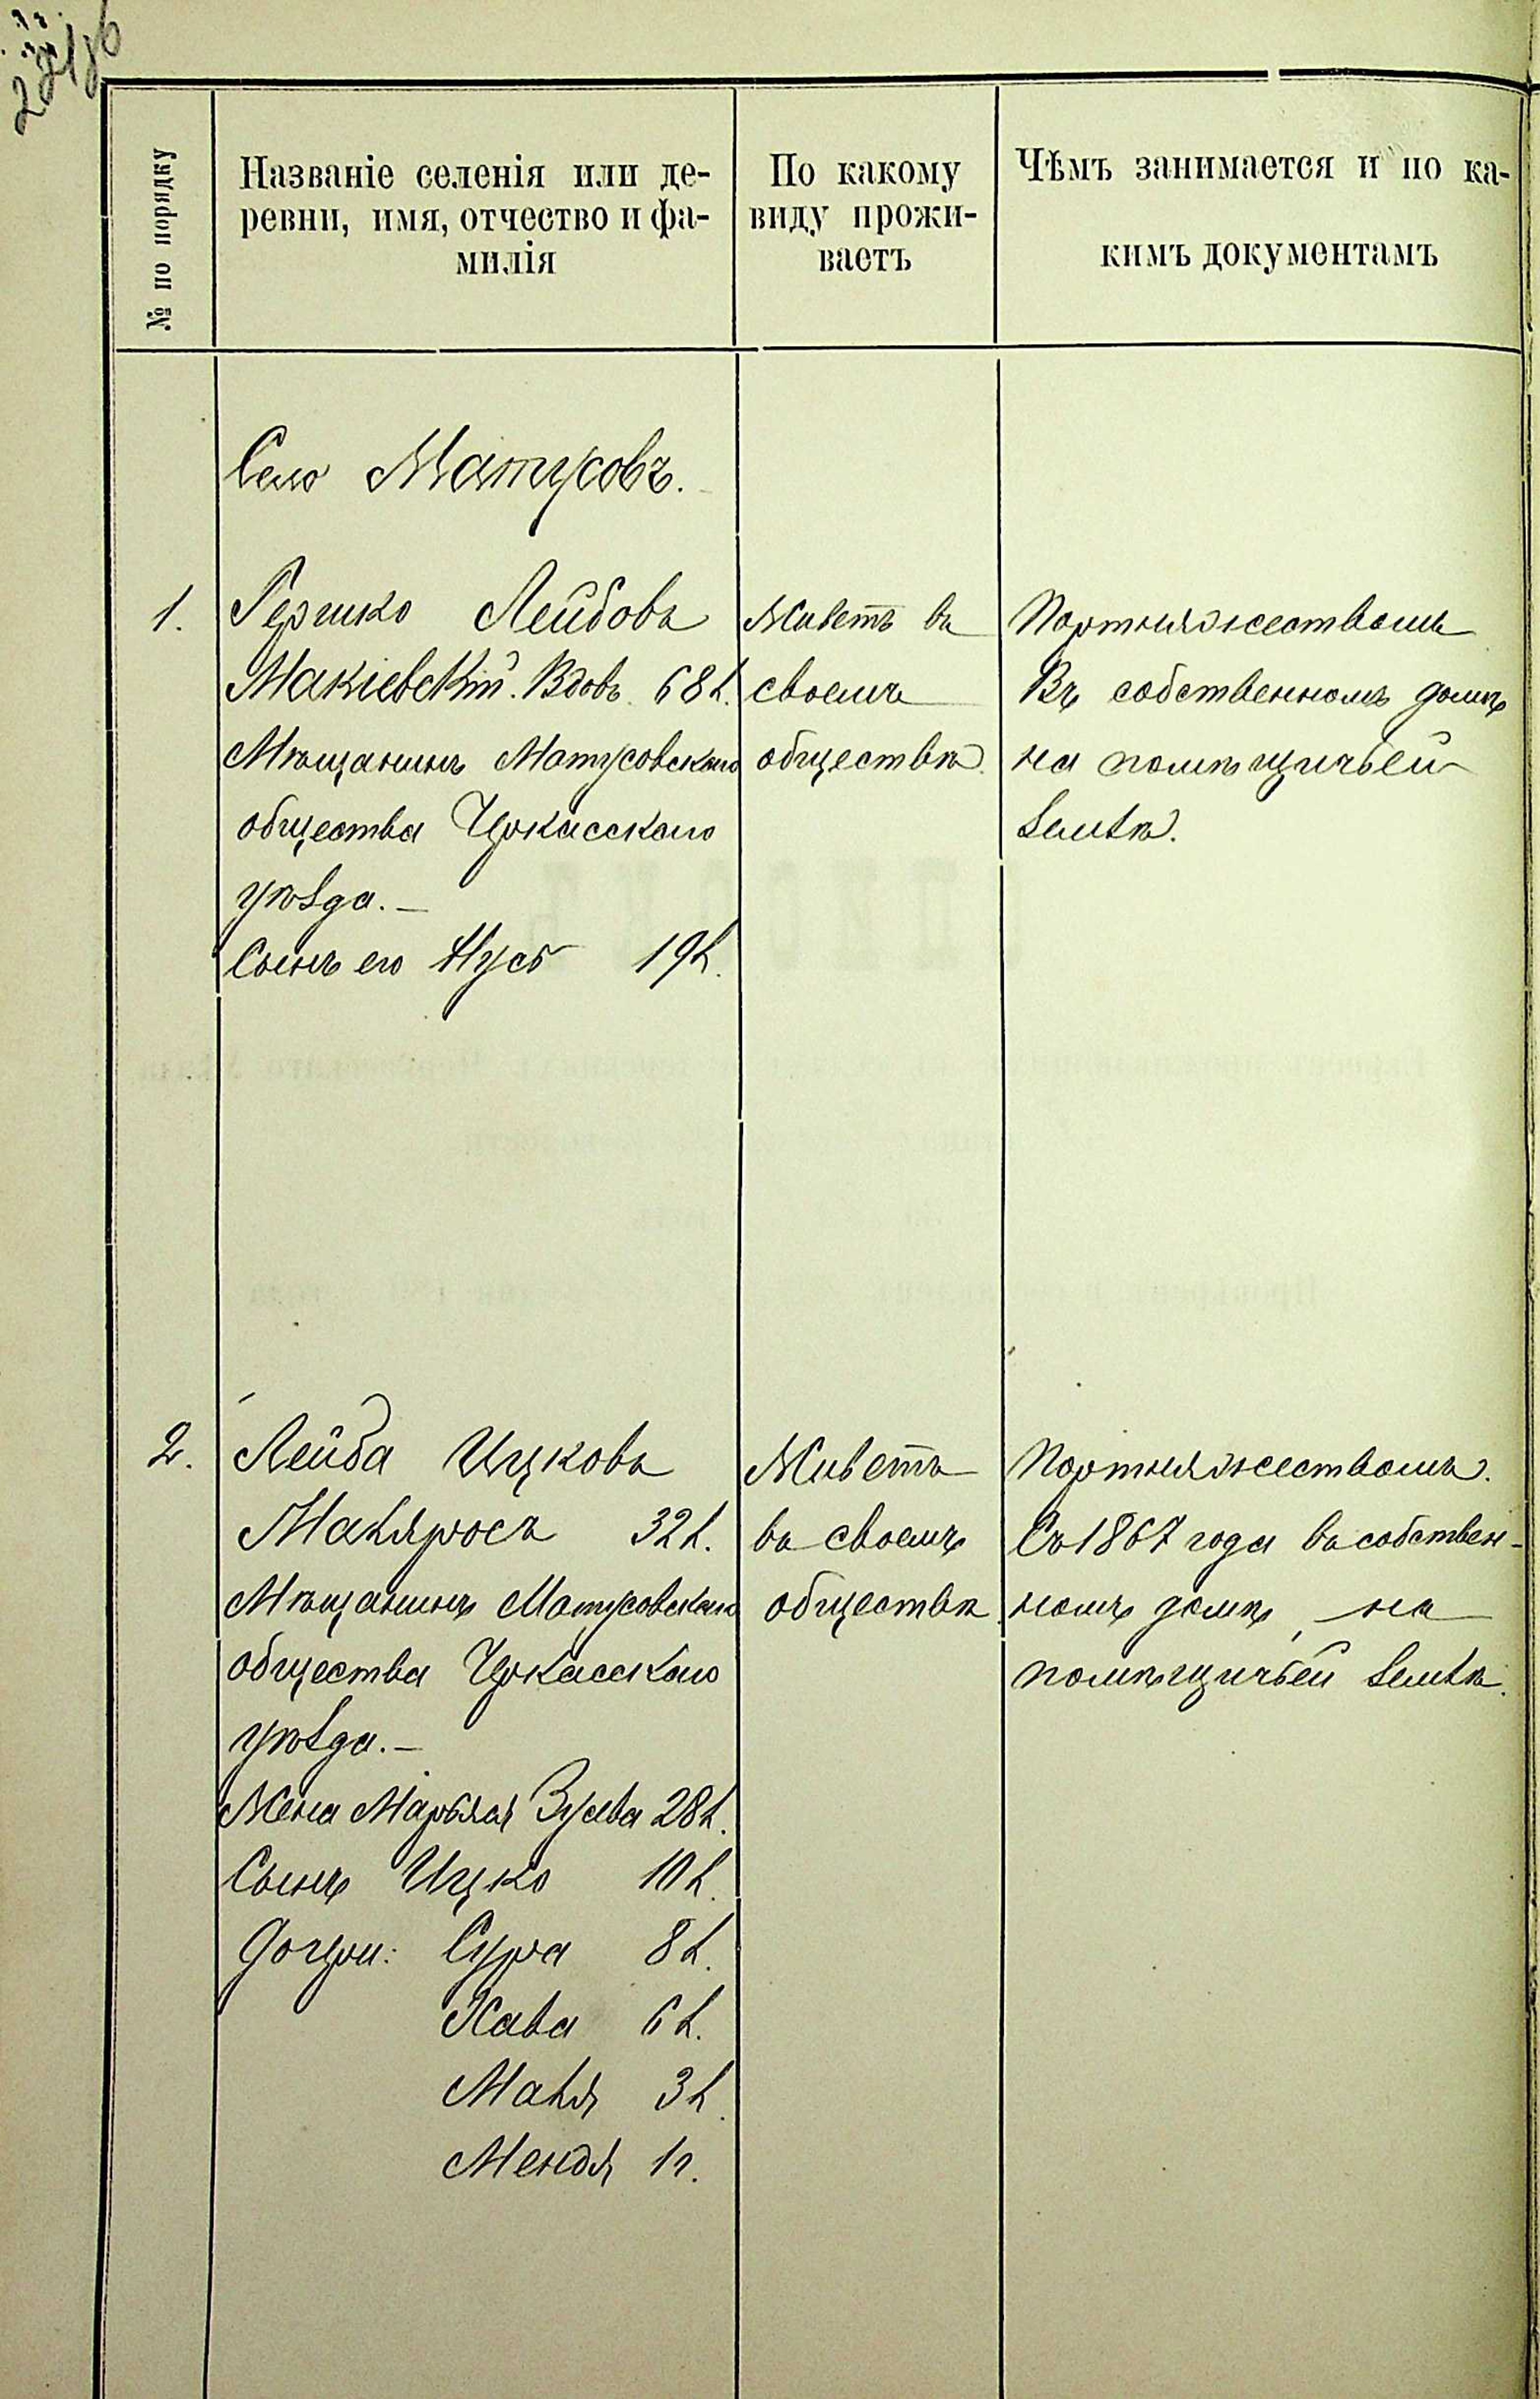 № по порядку
Названіе селенія или де-
ревни, имя, отчество и фа-
милія
По какому
виду прожи-
ваетъ
Чѣмъ занимается и по ка-
кимъ документамъ
Село Матусовъ.
1.
Гершко Лейбовъ
Макіевскій. Вдовъ. 68 л.
Мѣщанинъ Матусовскаго
общества Черкасскаго
уѣзда. —
Сынъ его Нусъ 19 л.
Живетъ въ
своемъ
обществѣ.
Портняжествомъ
Въ собственномъ домѣ
на помѣщичьей
землѣ.
2.
Лейба Ицковъ
32 л.
Мѣщанинъ Матусовскаго
общества Черкасскаго
уѣзда. —
Жена Марьяся Зусева 28 л.
Сынъ Ицко 10 л.
Дочери: Сура 8 л.
Хава 6 л.
Маля 3 л.
Мендя 1 г.
Живетъ
въ своемъ
обществѣ.
Портняжествомъ.
Съ 1867 года въ собствен-
номъ домѣ, на
помѣщичьей землѣ.